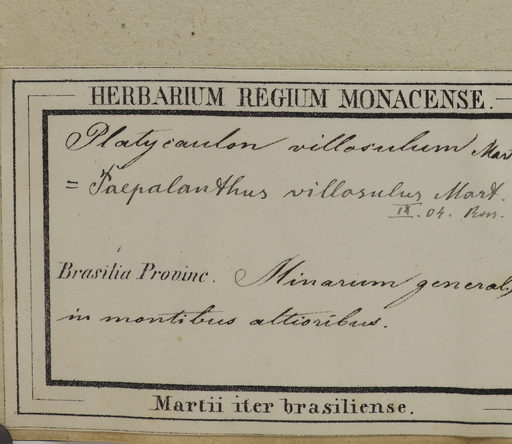 HERBARIUM REGIUM MONACENSE.
Platycaulon villosulum Mart
= Paepalanthus villosulus Mart.
IX. 04.
Brasilia Provinc. Minarum general
in montibus altioribus.
Martii iter brasiliense.